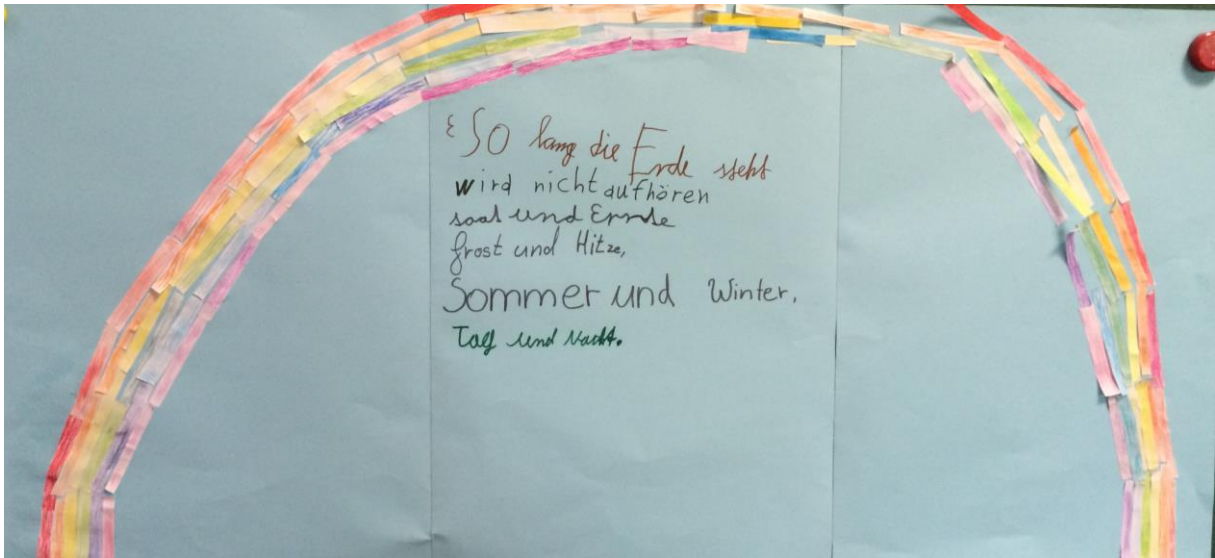 So lang die Erde steht
wird nicht aufhören
saat und Ernte
frost und Hitze,
Sommer und Winter,
Tag und Nacht.